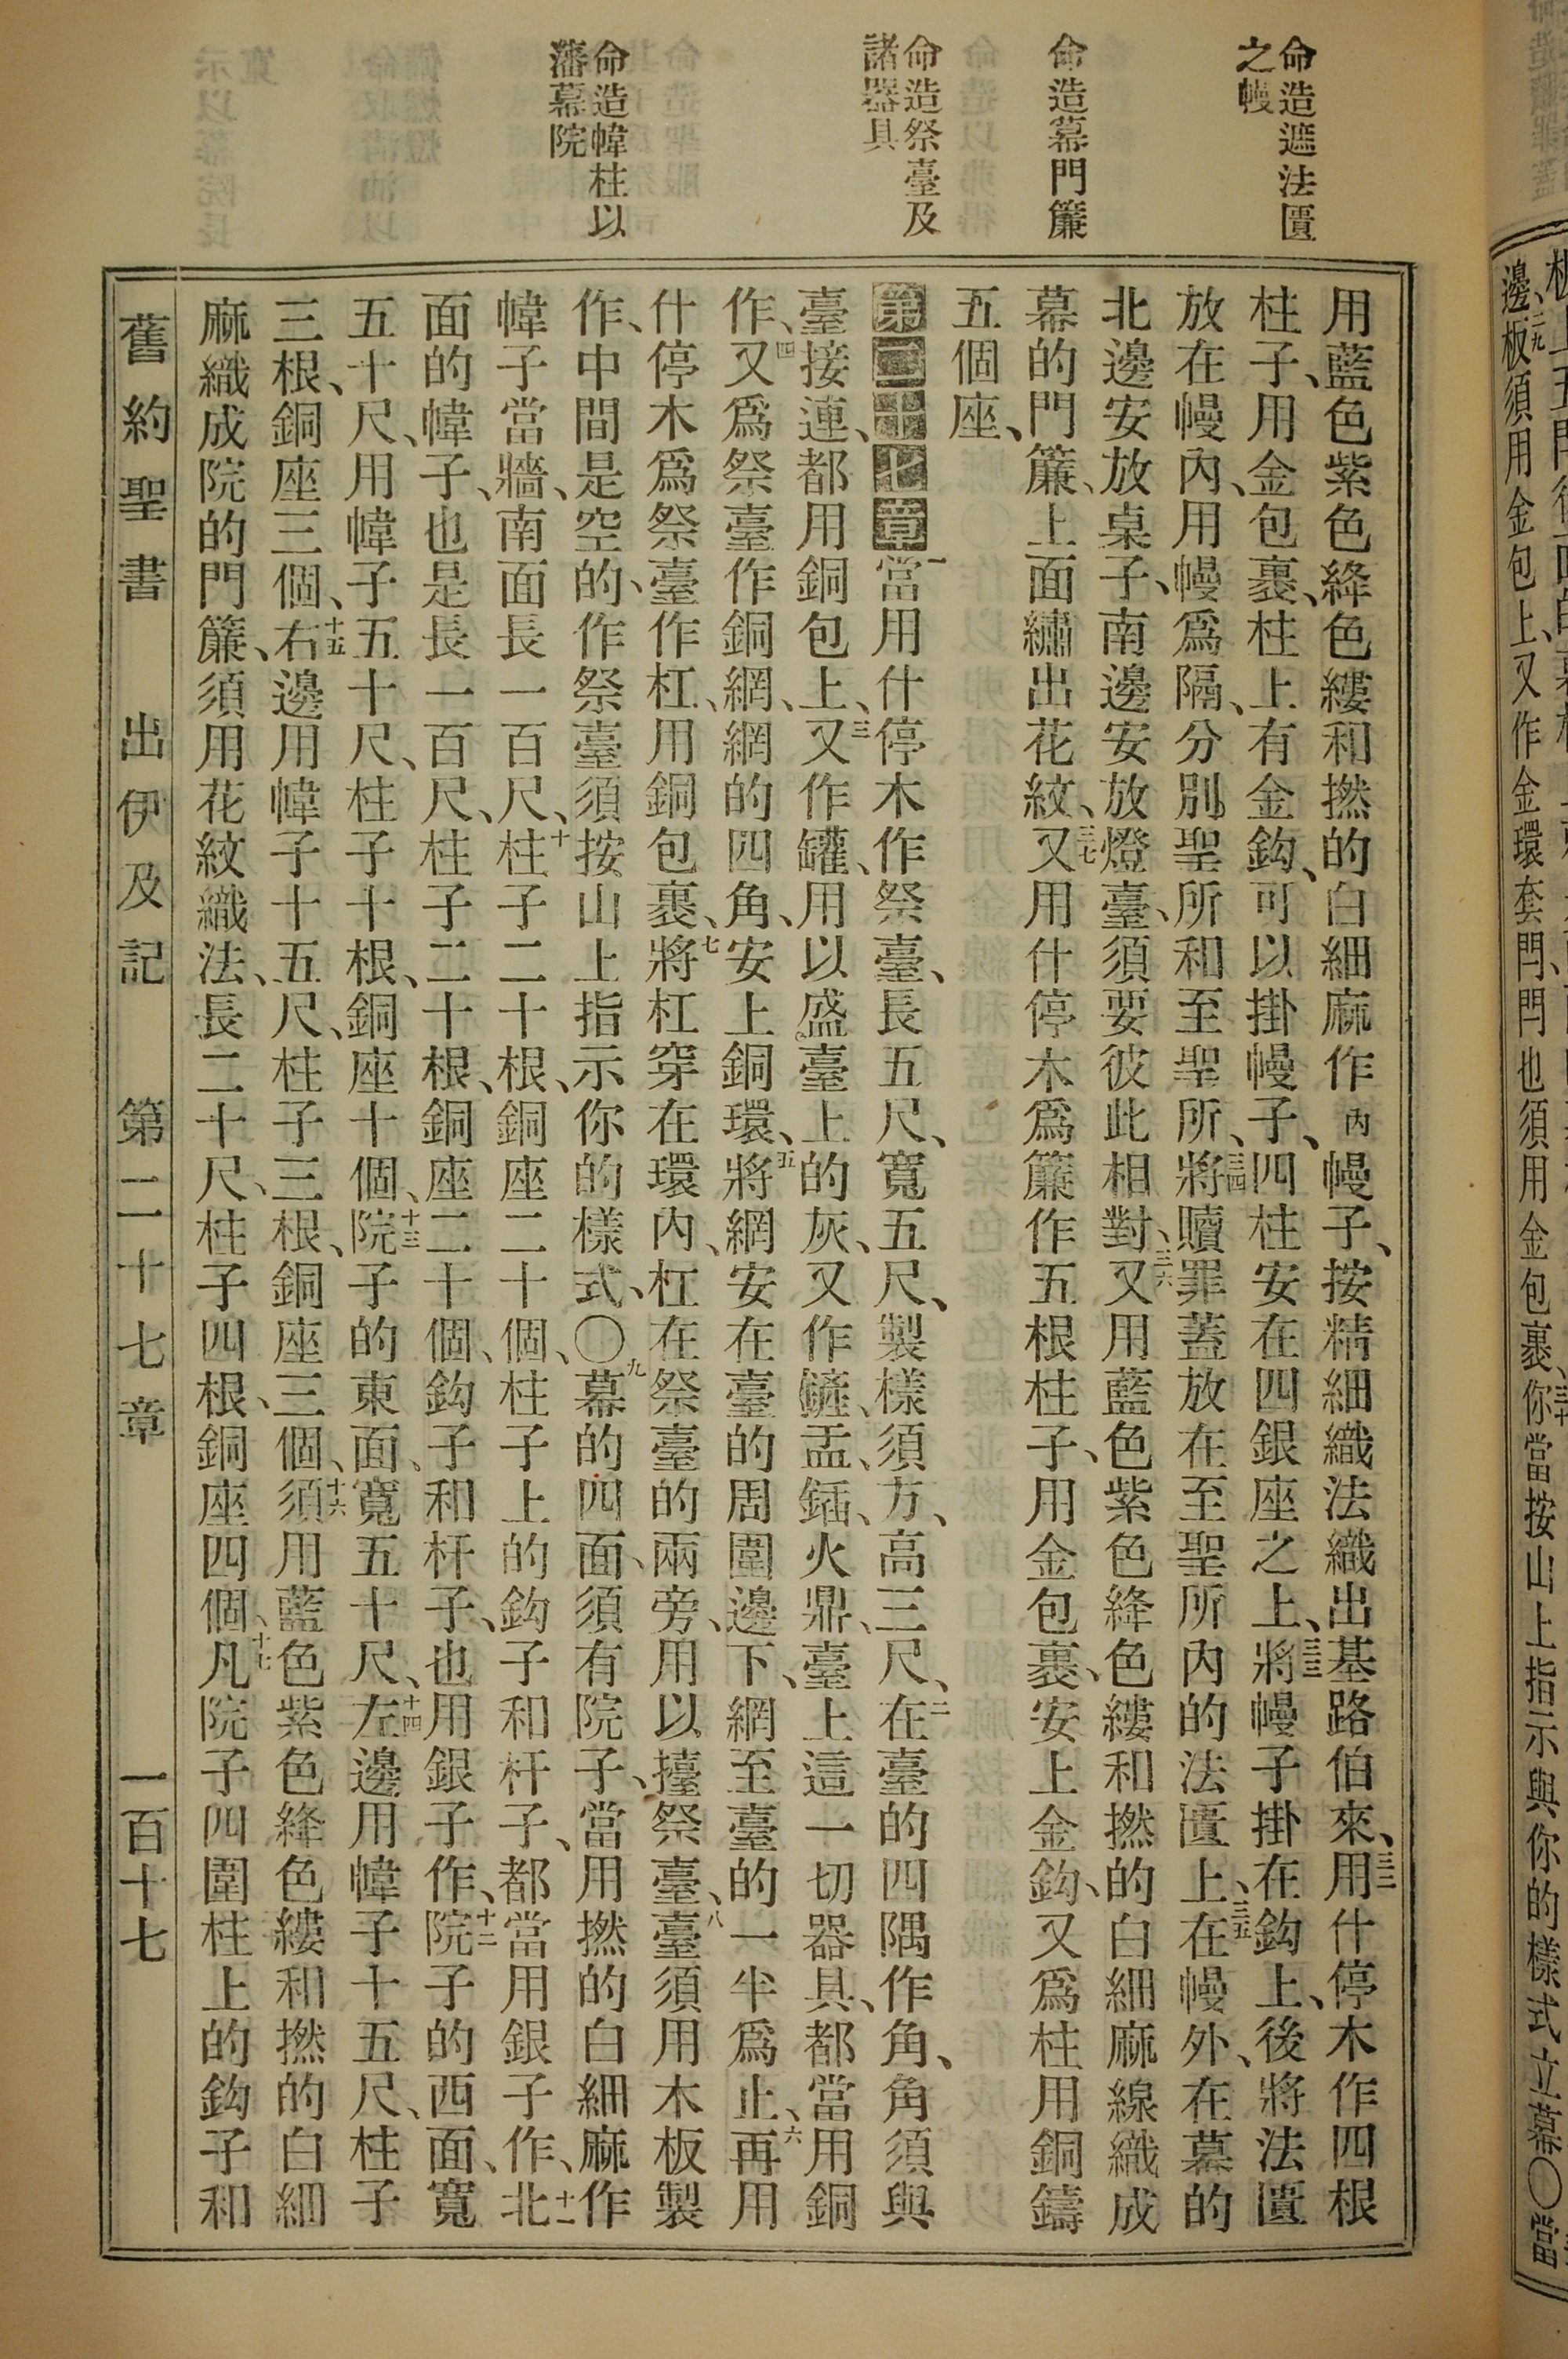 命造遮法匱
之幔
命造幕門簾
命造祭臺及
諸器具
命造幃柱以
藩幕院
用藍色紫色絳色縷和撚的白細麻作幔子、按精細織法織出基路伯來、三二用什停木作四根
柱子、用金包裹、柱上有金鈎、可以掛幔子、四柱安在四銀座之上、三三將幔子掛在鈎上、後將法匱
放在幔內、用幔爲隔、分別聖所和至聖所、三四將贖罪蓋放在至聖所內的法匱上、三五在幔外、在幕的
北邊安放桌子、南邊安放燈臺、須要彼此相對、三六又用藍色紫色絳色縷和撚的白細麻線織成
幕的門簾、上面繡出花紋、三七又用什停木爲簾作五根柱子、用金包裹、安上金鈎、又爲柱用銅鑄
五個座、
第二十七章一當用什停木作祭臺、長五尺、寬五尺、製樣須方、高三尺、二在臺的四隅作角、角須與
臺接連、都用銅包上、三又作罐、用以盛臺上的灰、又作鏟、盂、鍤、火鼎、臺上這一切器具、都當用銅
作、四又爲祭臺作銅網、網的四角、安上銅環、五將網安在臺的周圍邊下、網至臺的一半爲止、六再用
什停木爲祭臺作杠、用銅包裹、七將杠穿在環內、杠在祭臺的兩旁、用以擡祭臺、八臺須用木板製
作、中間是空的、作祭臺須按山上指示你的樣式、〇九幕的四面、須有院子、當用撚的白細麻作
幃子當牆、南面長一百尺、十柱子二十根、銅座二十個、柱子上的鈎子和杆子、都當用銀子作、十一北
面的幃子、也是長一百尺、柱子二十根、銅座二十個、鈎子和杆子、也用銀子作、十二院子的西面、寬
五十尺、用幃子五十尺、柱子十根、銅座十個、十三院子的東面、寬五十尺、十四左邊用幃子十五尺、柱子
三根、銅座三個、十五右邊用幃子十五尺、柱子三根、銅座三個、十六須用藍色紫色絳色縷和撚的白細
麻織成院的門簾、須用花紋織法、長二十尺、柱子四根、銅座四個、十七凡院子四圍柱上的鈎子和
舊約聖書 出伊及記 第二十七章 一百十七